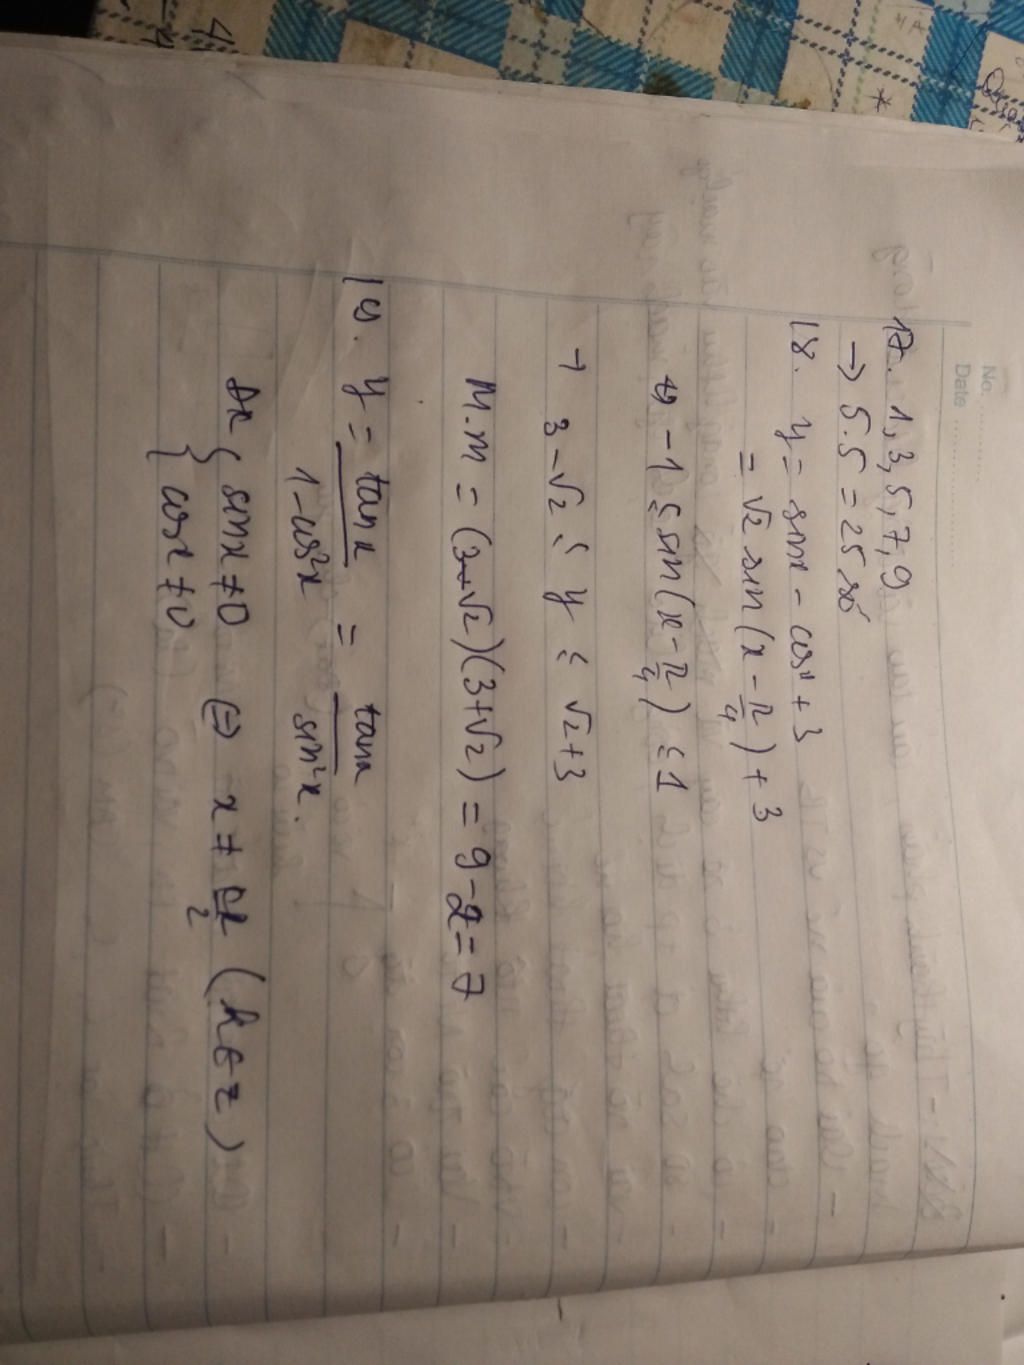 No.
Date
17. 1, 3, 5, 7, 9
→ 5.5 = 25 số
18. y = sinx - cosx + 3
= √2 sin(x - π/4) + 3
⇔ -1 ≤ sin(x - π/4) ≤ 1
→ 3 - √2 ≤ y ≤ √2 + 3
M.m = (3-√2)(3+√2) = 9 - 2 = 7
19. y = tanx / 1 - cos²x = tanx / sin²x.
ĐK { sinx ≠ 0 ⇔ x ≠ kπ/2 (k ∈ Z)
{ cosx ≠ 0